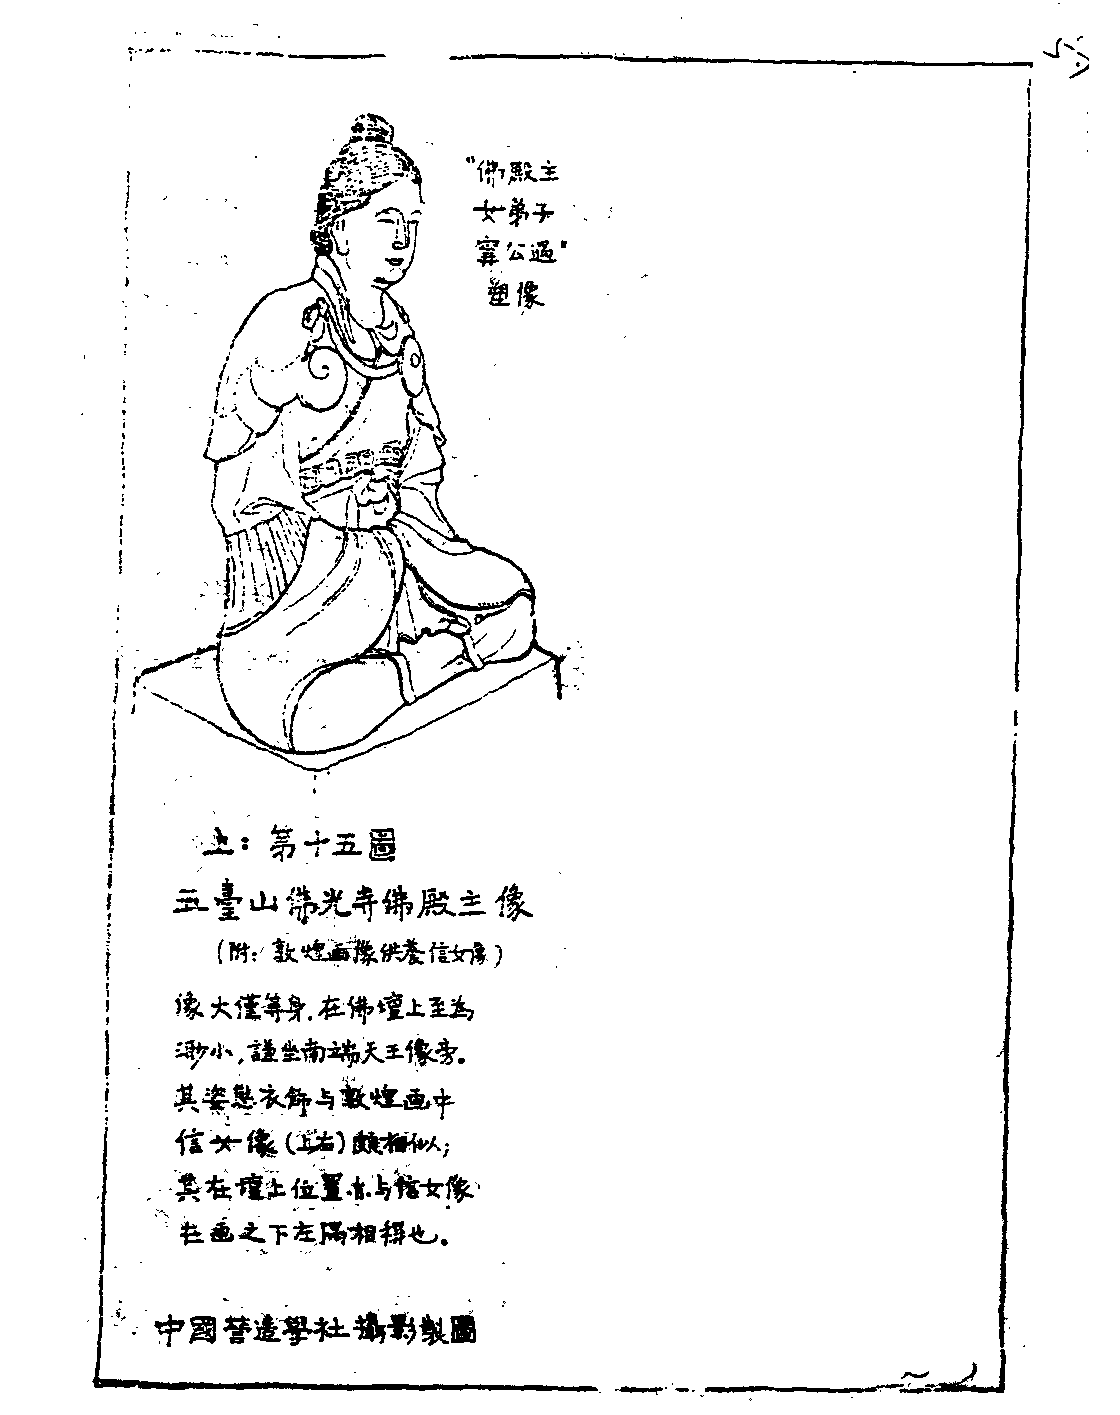 "佛殿主
女弟子
甯公遇"
塑像
上：第十五圖
五臺山佛光寺佛殿主像
（附：敦煌画像供養信女像）
像大僅等身，在佛壇上至為
渺小，謙坐南端天王像旁。
其姿態衣飾与敦煌画中
信女像（上右）頗相似；
其在壇上位置亦与信女像
在画之下左隅相稱也。
中國營造學社攝影製圖